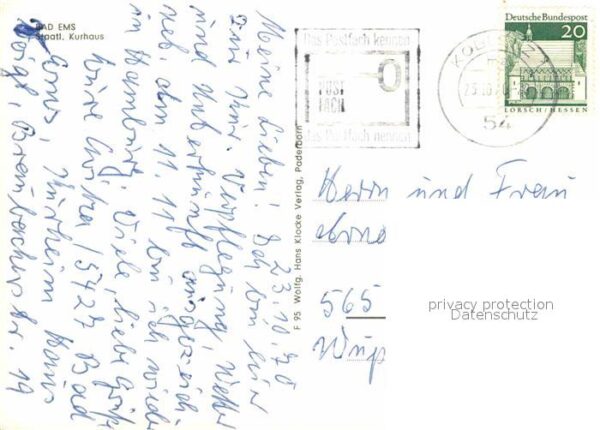 BAD EMS
Staatl. Kurhaus
23.10.70
Meine Lieben! Ich bin hier
zur Kur. Verpflegung, Wetter
und Unterkunft ausgezeich-
net. Am 11.11 bin ich wieder
in Hamburg. Viele, liebe Grüße
Eure
5427 Bad
Ems, Kurheim Haus
19
F 95 Wolfg. Hans Klocke Verlag, Paderborn
Das Postfach kennen
POST
FACH
das Postfach nennen
KOBLENZ 1
54
Deutsche Bundespost
20
LORSCH/HESSEN
Herrn und Frau
Arno
565
Wup
privacy protection
Datenschutz